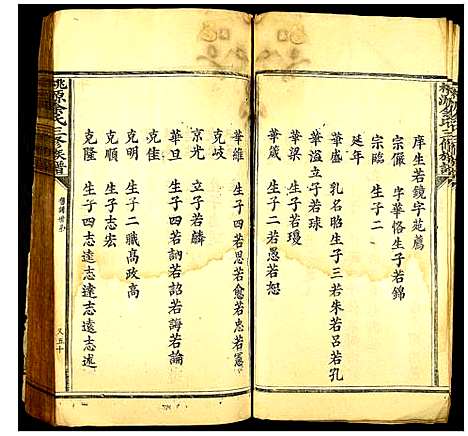 庠生若鏡字苑薦
宗儼 字華恪生子若錦
宗臨 生子二
延年
華盛 乳名昭生子三若朱若呂若孔
華溢立子若球
華梁 生子若瓊
華箴 生子二若愚若恕
華維 生子四若思若愈若忠若憲
克岐
京光 立子若麟
華旦 生子四若訥若詔若誨若論
克佳
克明 生子二職高政高
克順 生子志宏
克隆 生子四志達志達志遠志述
桃源余氏三修族譜
又五十